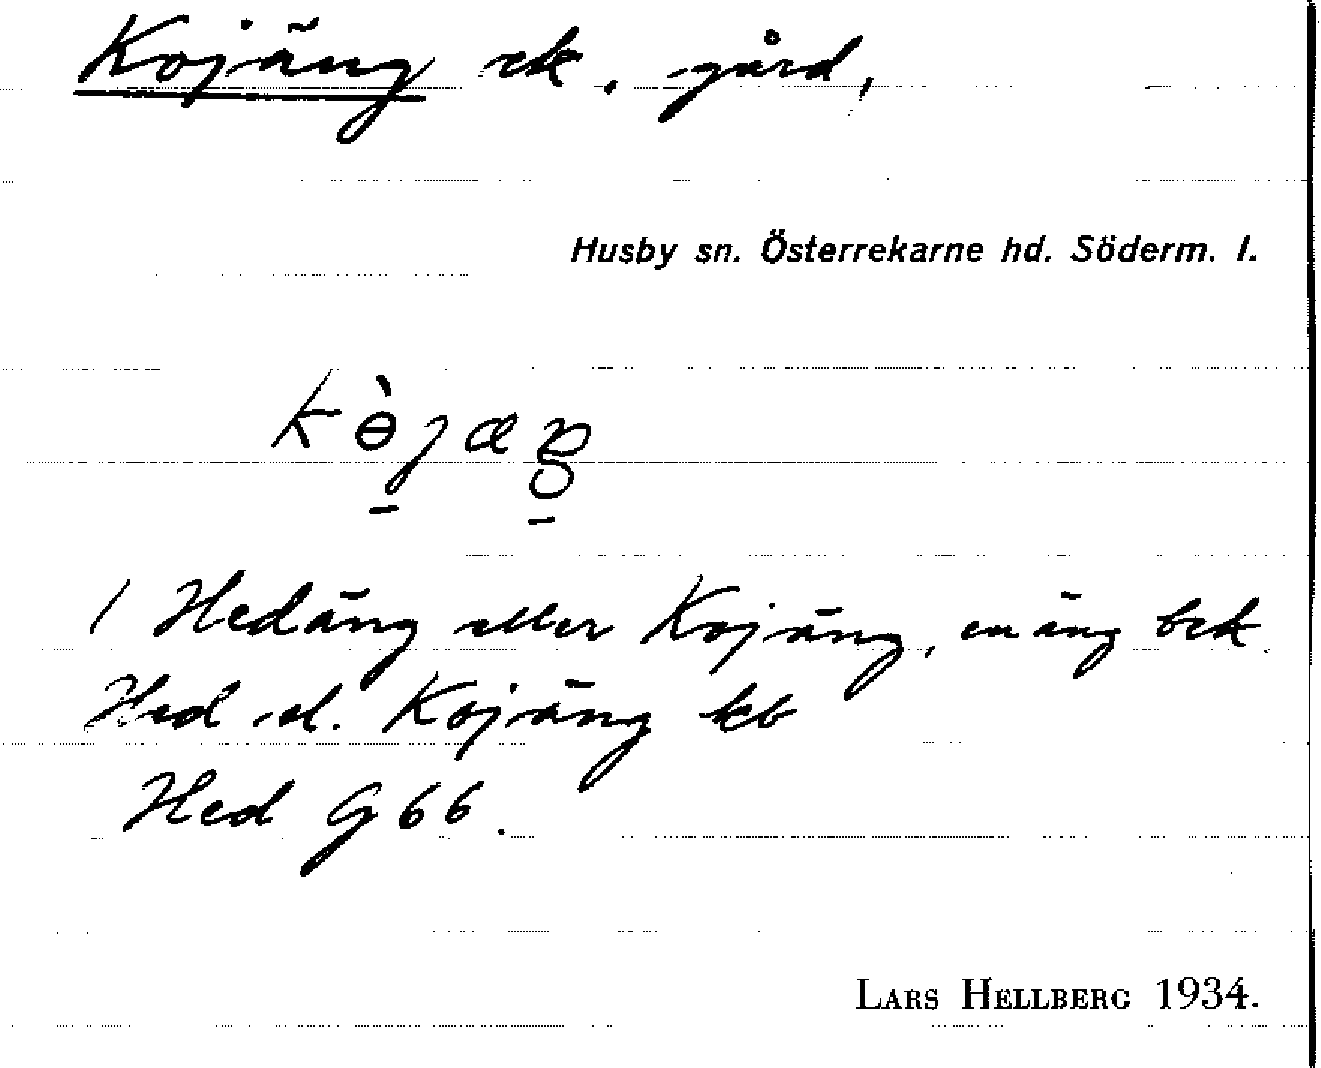 Kojäng ek. gård,
Husby sn. Österrekarne hd. Söderm. l.
kɵ̀jæŋ
/ Hedäng eller Kojäng, en äng bek.
Hed el. Kojäng kb
Hed G 66.
LARS HELLBERG 1934.